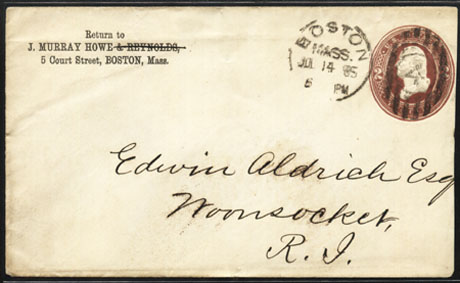 Return to
J. MURRAY HOWE & REYNOLDS,
5 Court Street, BOSTON, Mass.
BOSTON
MASS.
JUL 14 85
6 PM
Edwin Aldrich Esq
Woonsocket,
R. I.